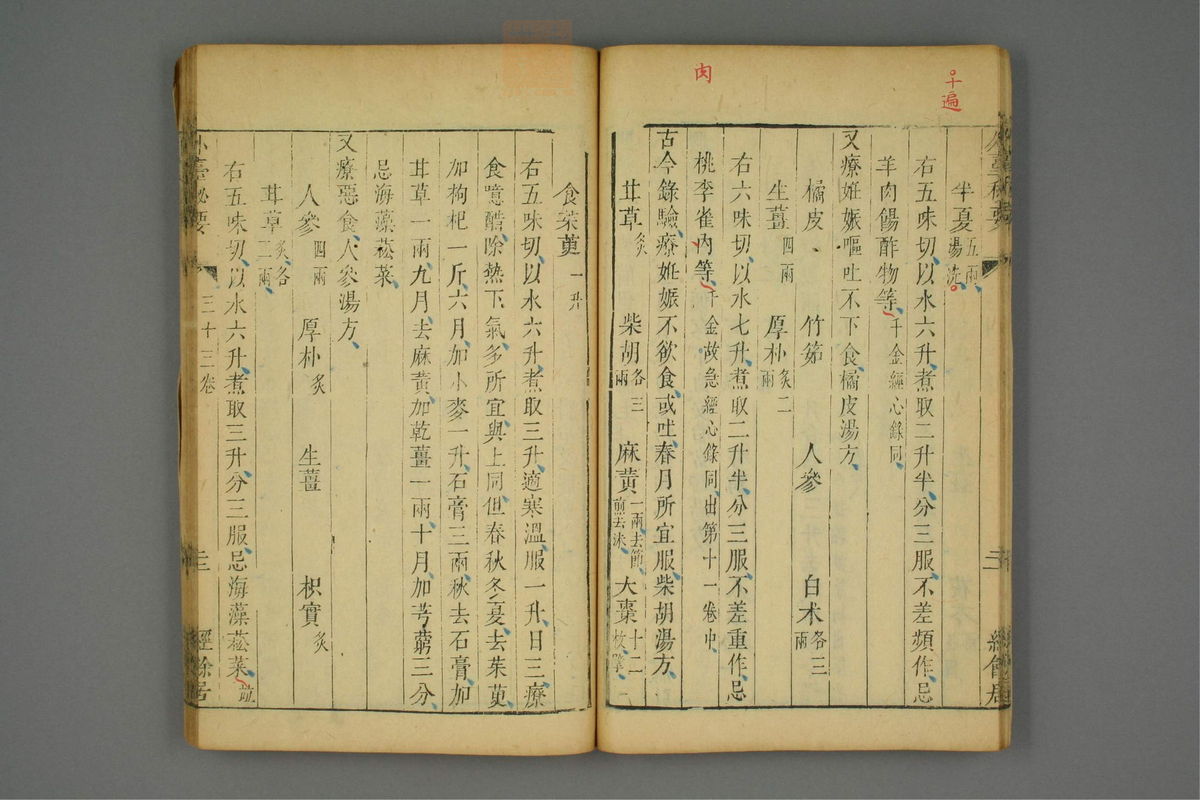 十遍
肉
外臺秘要
半夏五兩湯洗
右五味切以水六升煮取二升半分三服不差頻作忌
羊肉餳酢物等千金經心錄同
又療姙娠嘔吐不下食橘皮湯方
橘皮 竹筎 人參 白术各三兩
生薑四兩 厚朴炙二兩
右六味切以水七升煮取二升半分三服不差重作忌
桃李雀肉等千金救急經心錄同出第十一卷中
古今錄驗療姙娠不欲食或吐春月所宜服柴胡湯方
甘草炙 柴胡各三兩 麻黃一兩去節煎去沫 大棗十二枚擘
食茱萸一升
右五味切以水六升煮取三升適寒溫服一升日三療
食噫醋除熱下氣多所宜與上同但春秋冬夏去茱萸
加枸杞一斤六月加小麥一升石膏三兩秋去石膏加
甘草一兩九月去麻黃加乾薑一兩十月加芎藭三分
忌海藻菘菜
又療惡食人參湯方
人參四兩 厚朴炙 生薑 枳實炙
甘草炙各二兩
右五味切以水六升煮取三升分三服忌海藻菘菜並
外臺秘要 三十三卷 經餘居